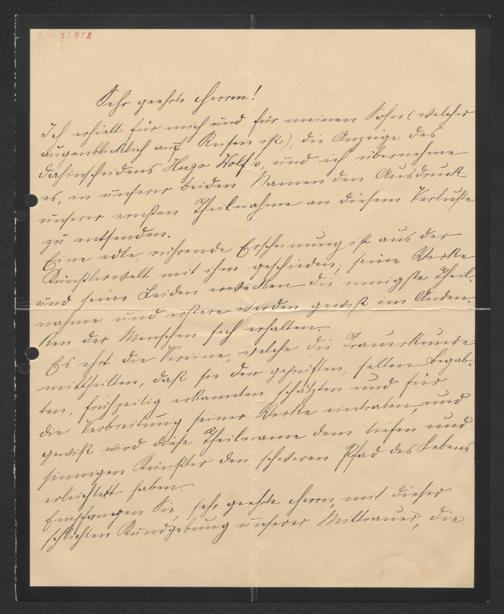 Sehr geehrte Herren!
Ich erhielt für mich und für meinen Sohn (welcher
augenblicklich auf Reisen ist), die Anzeige des
Dahinscheidens Hugo Wolf's, und ich übernehme
es, in unserer beiden Namen den Ausdruck
unserer ernsten Theilnahme an diesem Verluste
zu entsenden.
Eine edle rührende Erscheinung ist aus der
Künstlerwelt mit ihm geschieden, seine Werke
und seine Leiden erweckten die innigste Theil-
nahme und erstere werden gewiß im Anden-
ken der Menschen sich erhalten.
Es ehrt die Vereine, welche die Trauerkunde
mittheilten, daß sie den geprüften, selten Begab-
ten, frühzeitig erkannten, schätzten und für
die Verbreitung seiner Werke eintraten, und
gewiß wird diese Theilname dem tiefen und
sinnigen Künstler den schweren Pfad des Lebens
erleichtert haben.
Empfangen Sie, sehr geehrte Herrn, mit dieser
schlichten Kundgebung unserer Mittrauer, die